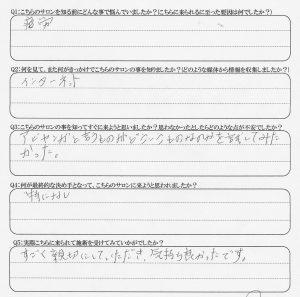 Q1:こちらのサロンを知る前にどんな事で悩んでいましたか?(こちらに来られるに至った要因は何でしたか?)
疲労
Q2:何を見て、また何がきっかけでこちらのサロンの事を知りましたか?(どのような媒体から情報を収集しましたか?)
インターネット
Q3:こちらのサロンの事を知ってすぐに来ようと思いましたか?思わなかったとしたらどのような点が不安でしたか?
というものがどういうものなのかを試してみた
かった。
Q4:何が最終的な決め手となって、こちらのサロンに来ようと思われましたか?
特になし
Q5:実際こちらに来られて施術を受けてみていかがでしたか?
すごく親切にしていただき、気持ち良かったです。